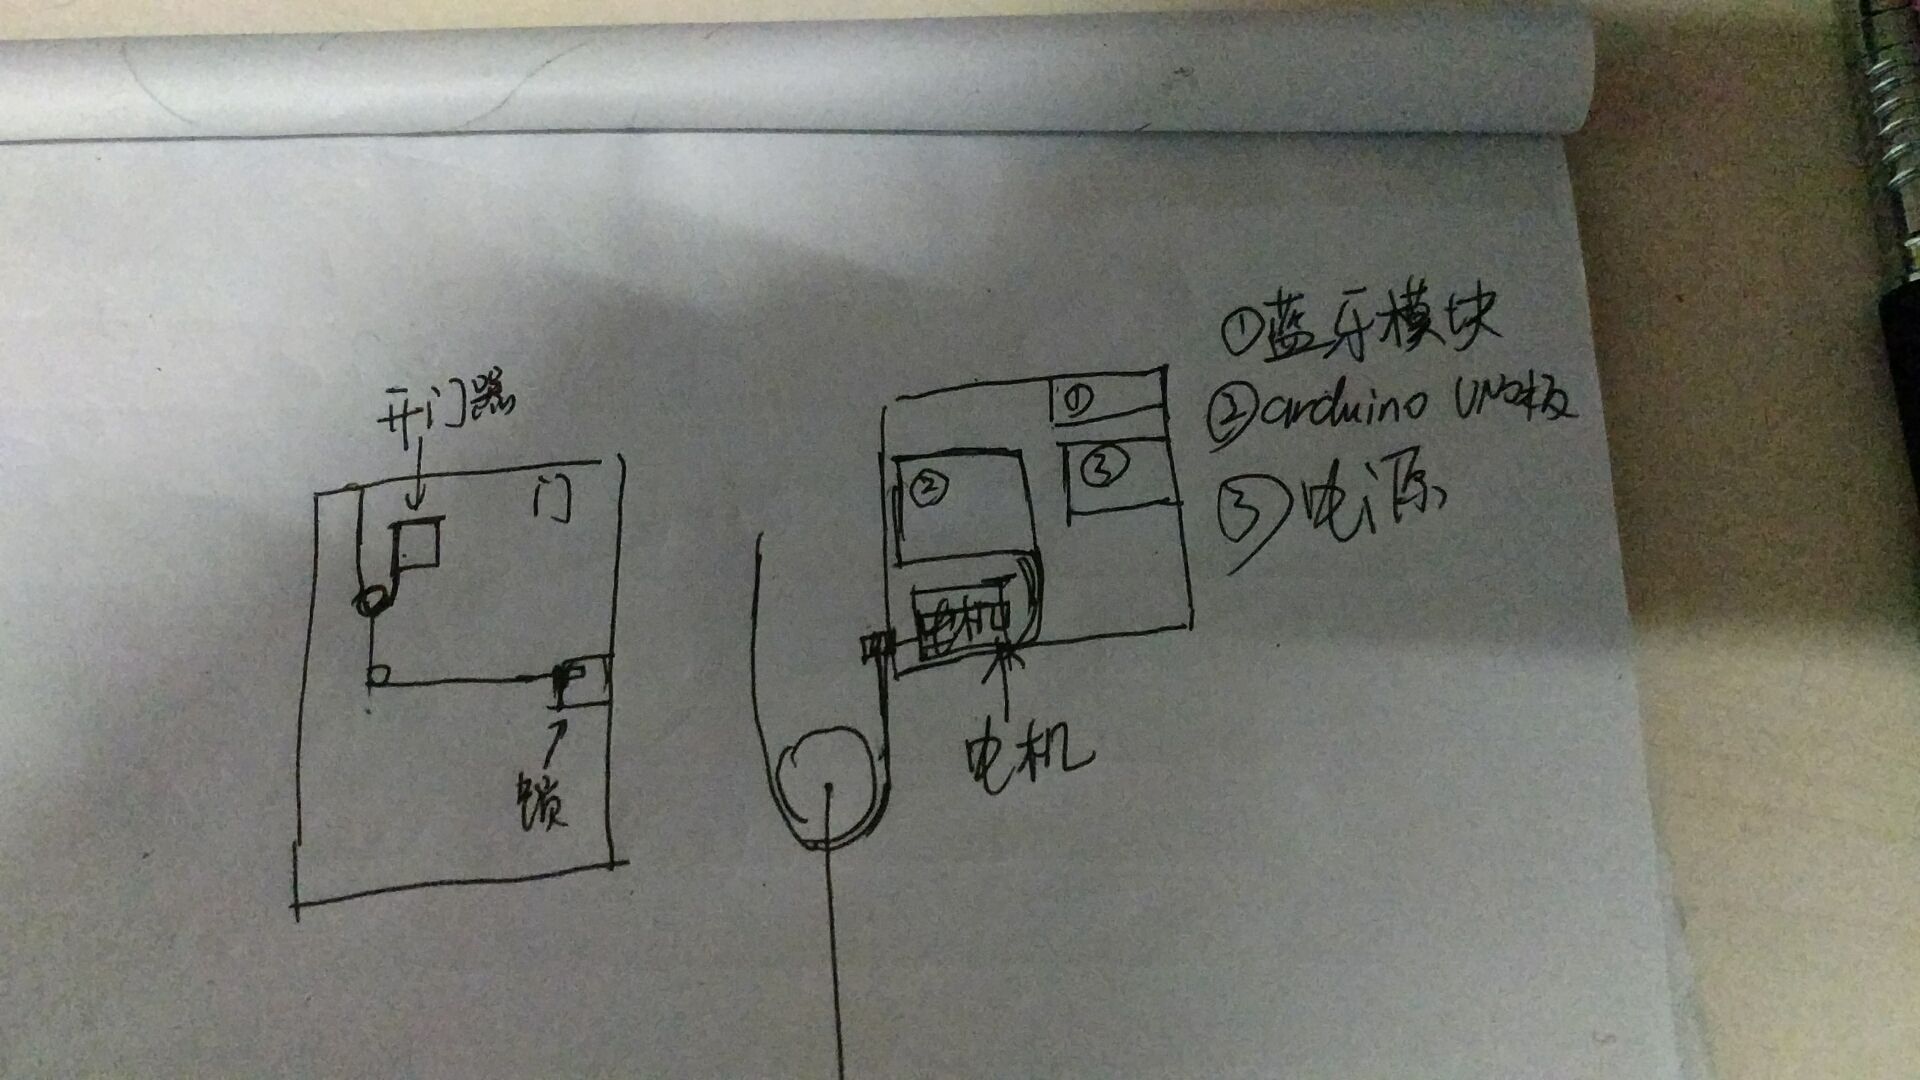 开门器
门
锁
①
②
③
电机
电机
①蓝牙模块
②arduino UNO板
③电源